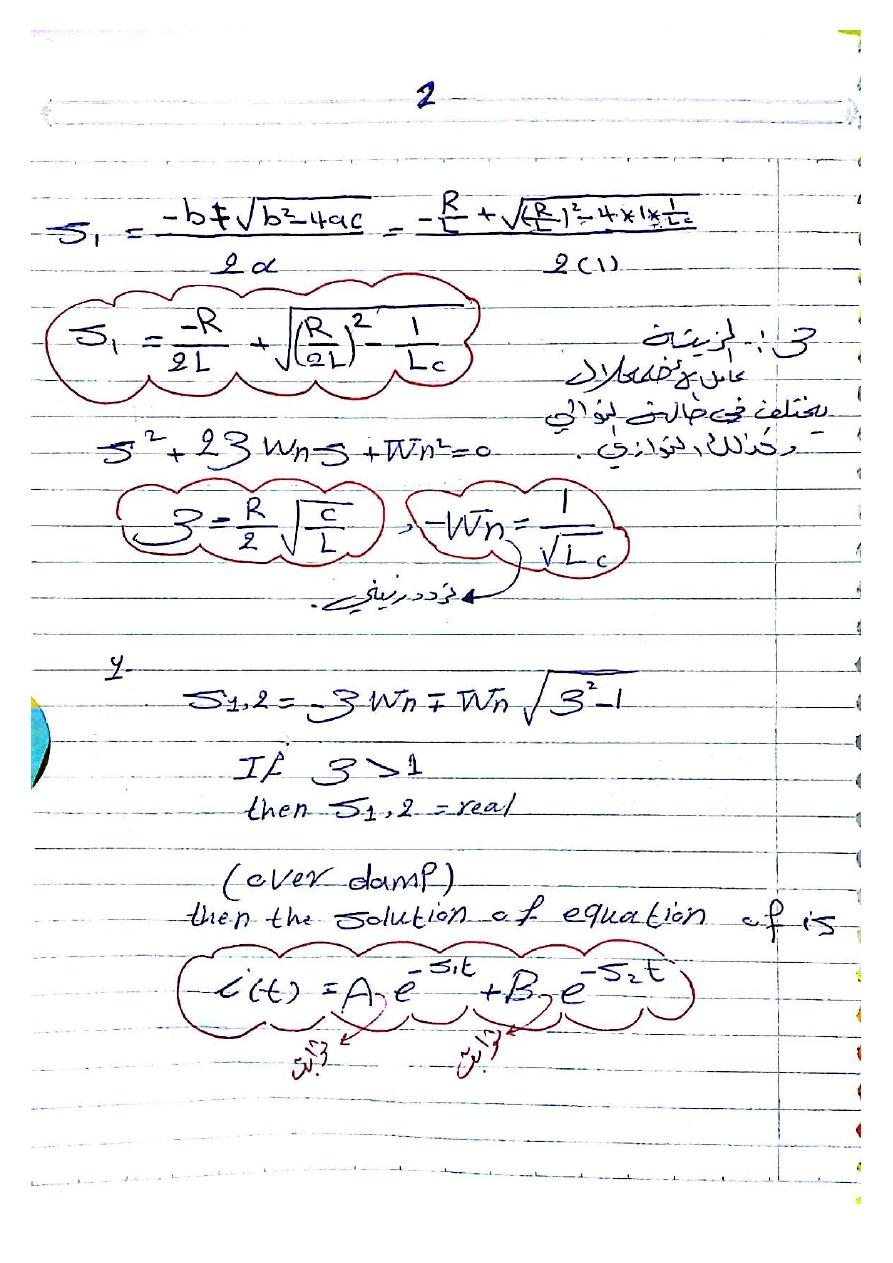 2
S₁ = (-b ∓ √(b²-4ac)) / 2a = (-R/L + √((R/L)²-4*1*1/Lc)) / 2(1)
S₁ = -R/2L + √((R/2L)² - 1/Lc)
3 :
عامل
يختلف في حالة التوالي
وكذلك التوازي.
S² + 23 Wn S + Wn² = 0
3 = R/2 √(c/L) , -Wn = 1/√Lc
تردد رنيني.
y-
S1,2 = -3 Wn ∓ Wn √(3²-1)
If 3 > 1
then S1,2 = real
(over damp)
then the solution of equation of is
i(t) = A e^-S₁t + B e^-S₂t
ثوابت ثوابت